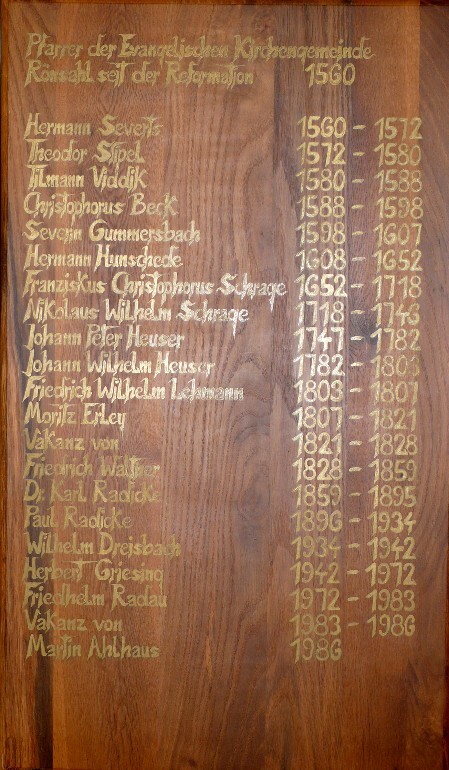 Pfarrer der Evangelischen Kirchengemeinde
Rönsahl seit der Reformation 1560
Hermann Severts 1560 - 1572
Theodor Stipel 1572 - 1580
Tilmann Viddik 1580 - 1588
Christophorus Beck 1588 - 1598
Severin Gummersbach 1598 - 1607
Hermann Hunschede 1608 - 1652
Franziskus Christophorus Schrage 1652 - 1718
Nikolaus Wilhelm Schrage 1718 - 1746
Johann Peter Heuser 1747 - 1782
Johann Wilhelm Heuser 1782 - 1803
Friedrich Wilhelm Lehmann 1803 - 1807
Moritz Erley 1807 - 1821
Vakanz von 1821 - 1828
Friedrich Walther 1828 - 1859
Dr. Karl Radicke 1859 - 1895
Paul Radicke 1896 - 1934
Wilhelm Dreisbach 1934 - 1942
Herbert Griesing 1942 - 1972
Friedhelm Radau 1972 - 1983
Vakanz von 1983 - 1986
Martin Ahlhaus 1986